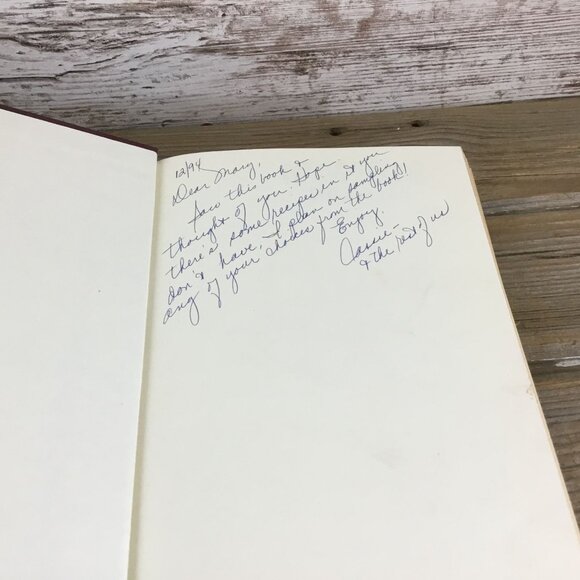 12/94
Dear Mary,
Saw this book &
thought of you. Hope
there's some recipes in it you
don't have. I plan on sampling
any of your choices from the book!
Enjoy.
Cassie -
& the rest of us